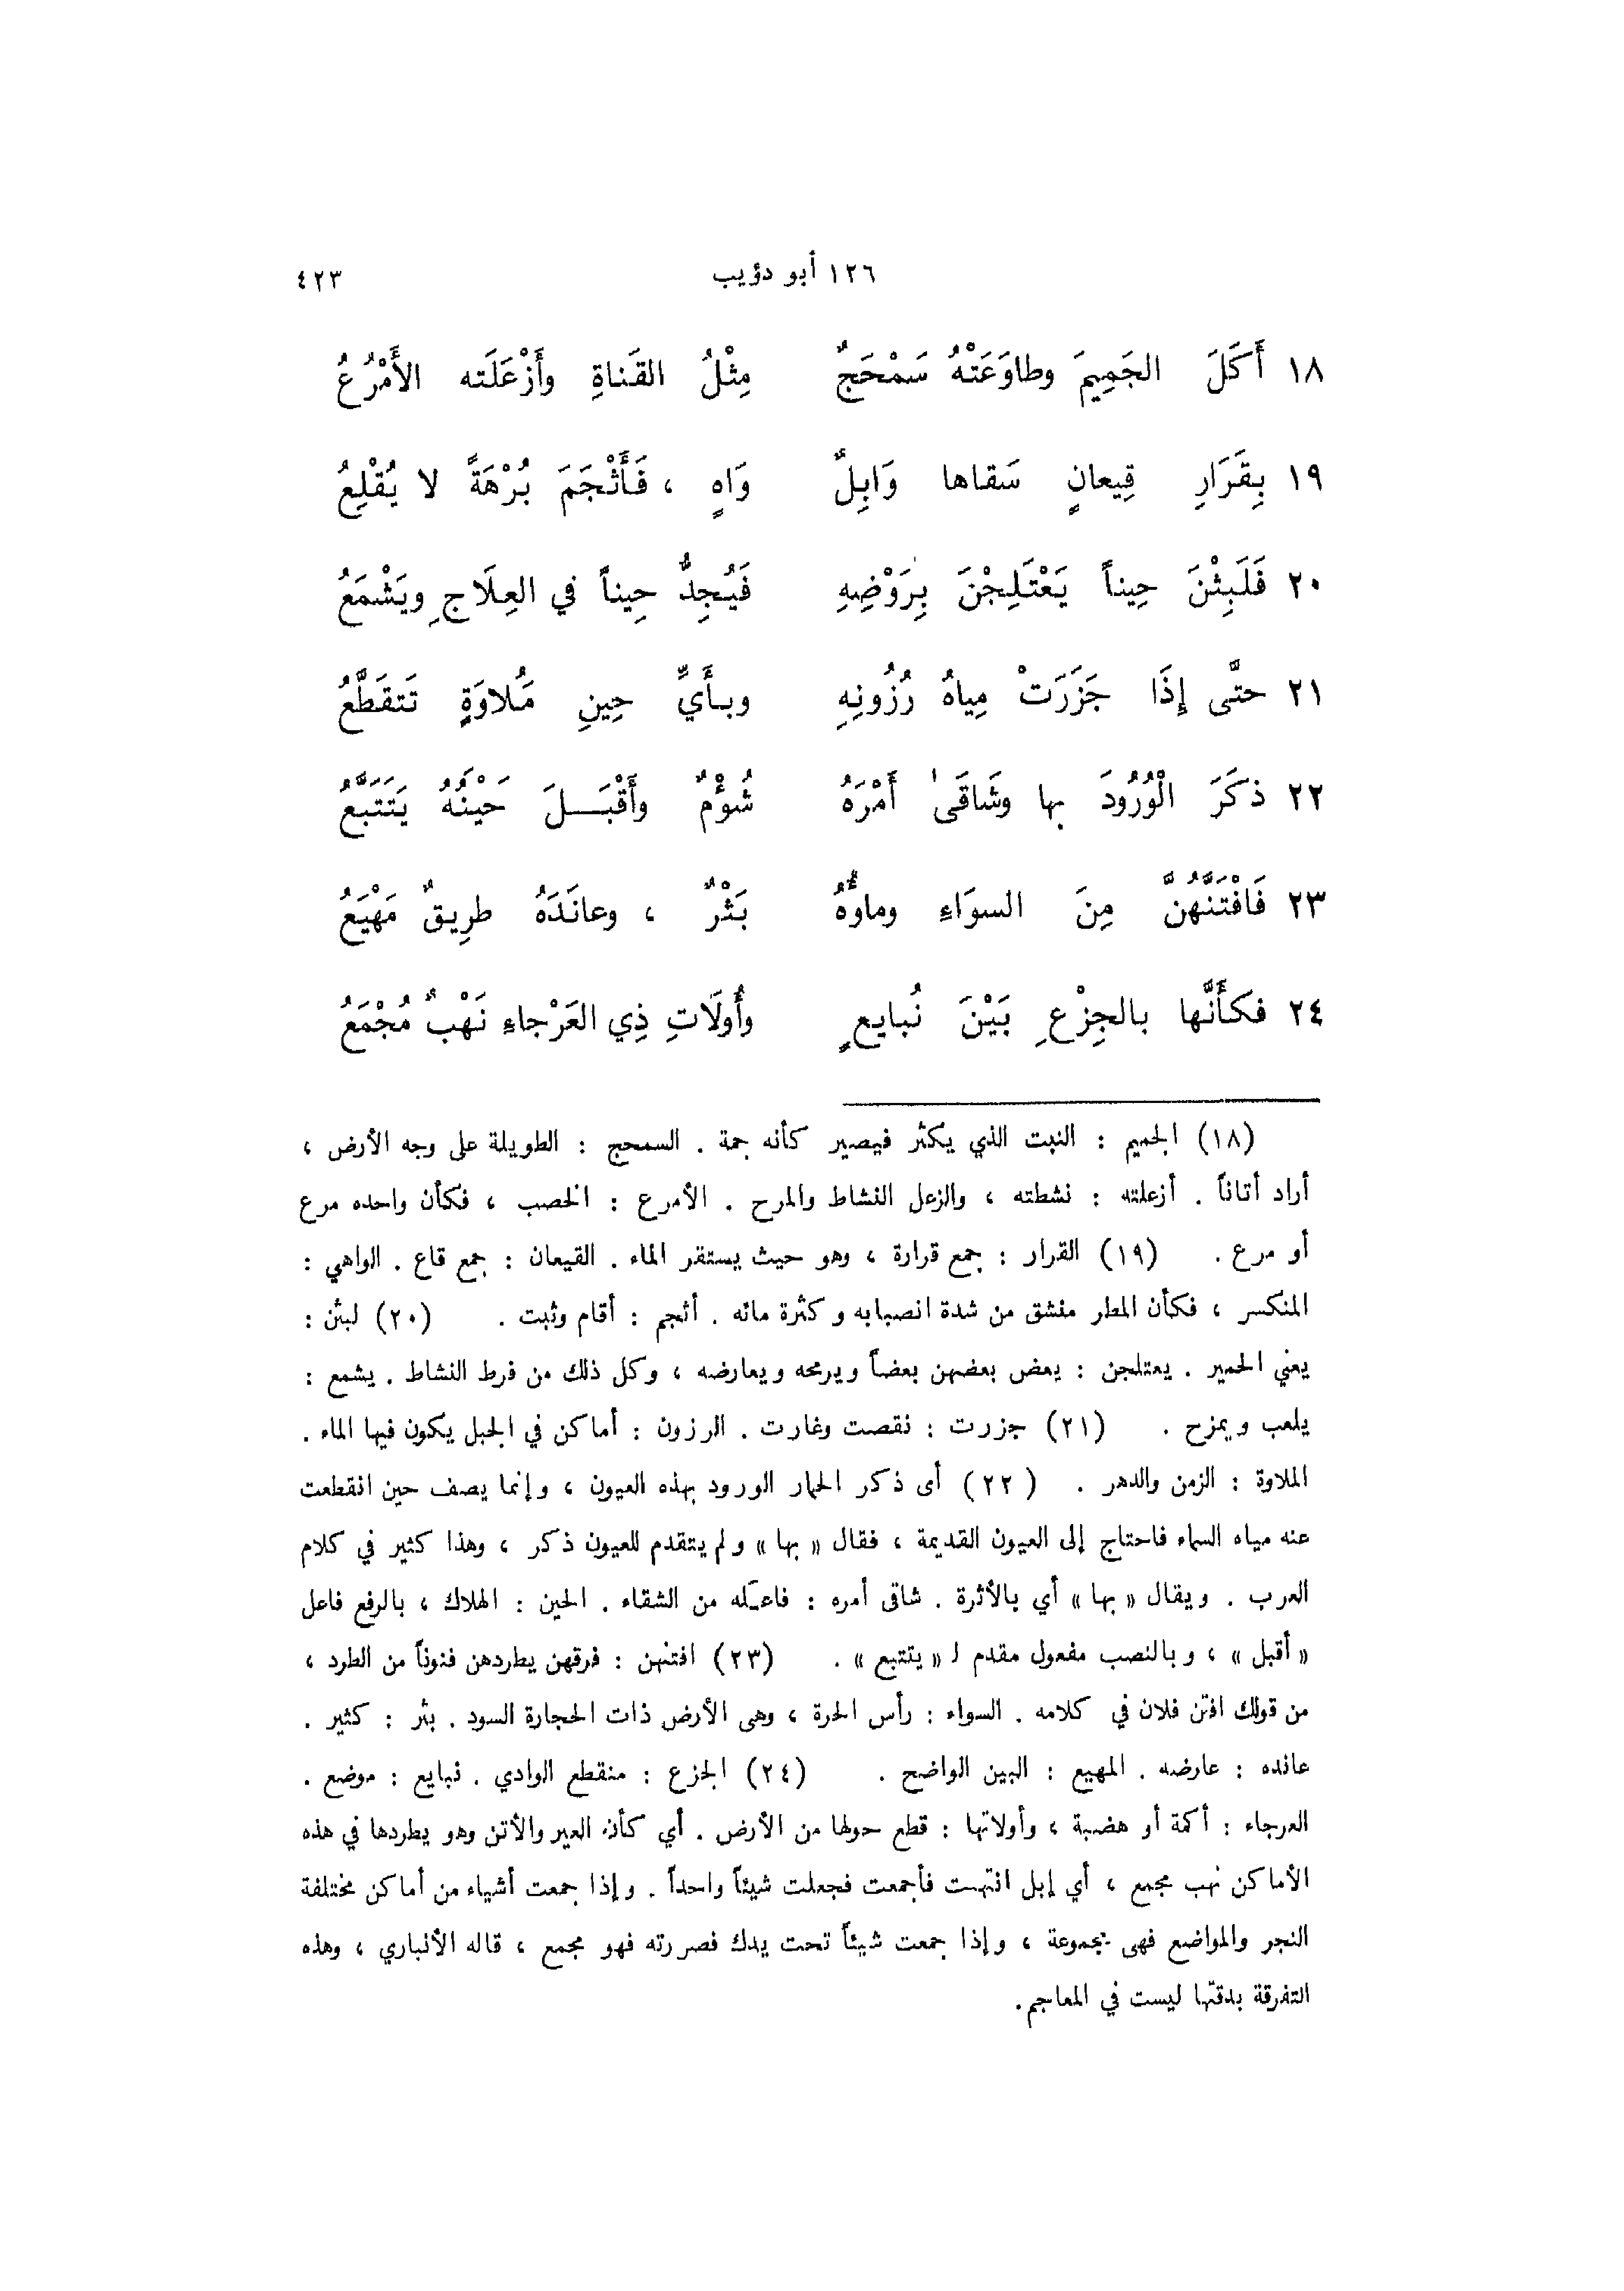 ١٢٦ أبو دؤيب ٤٢٣
١٨ أَكَلَ الجَمِيمَ وطاوَعَتْهُ سَمْحَجٌ مِثْلُ القَناةِ وأَزْعَلَته الأَمْرُعُ
١٩ بِقَرَارِ قِيعانٍ سَقاها وَابِلٌ وَاهٍ ، فَأَثْجَمَ بُرْهَةً لا يُقْلِعُ
٢٠ فَلَبِثْنَ حِيناً يَعْتَلِجْنَ بِرَوْضِهِ فَيُجِدُّ حِيناً في العِلَاجِ ويَشْمَعُ
٢١ حتَّى إِذَا جَزَرَتْ مِياهُ رُزُونِهِ وبأَيِّ حِينِ مَُلاوَةٍ تَتقَطَّعُ
٢٢ ذكَرَ الْوُرُودَ بها وشَاقَىٰ أَمْرَهُ شُؤْمٌ وأَقْبَلَ حَيْنَُهُ يَتَتبَّعُ
٢٣ فَافْتَنَّهُنَّ مِنَ السوَاءِ وماؤُهُ بَثْرٌ ، وعانَدَهُ طرِيقٌ مَهْيَعُ
٢٤ فكَأَنَّها بالجِزْعِ بَيْنَ نُبايعٍ وأُولَاتِ ذِي العَرْجاءِ نَهْبٌ مُجْمَعُ
(١٨) الجميم : النبت الذي يكثر فيصير كأنه جمة . السمحج : الطويلة على وجه الأرض ،
أراد أتاناً . أزعلته : نشطته ، والزعل النشاط والمرح . الأمرع : الخصب ، فكأن واحده مرع
أو مرع . (١٩) القرار : جمع قرارة ، وهو حيث يستقر الماء . القيعان : جمع قاع . الواهي :
المنكسر ، فكأن المطر منشق من شدة انصبابه وكثرة مائه . أثجم : أقام وثبت . (٢٠) لبثن :
يعني الحمير . يعتلجن : يعض بعضهن بعضاً ويرمحه ويعارضه ، وكل ذلك من فرط النشاط . يشمع :
يلعب ويمزح . (٢١) جزرت : نقصت وغارت . الرزون : أماكن في الجبل يكون فيها الماء .
الملاوة : الزمن والدهر . (٢٢) أى ذكر الحمار الورود بهذه العيون ، وإنما يصف حين انقطعت
عنه مياه السماء فاحتاج إلى العيون القديمة ، فقال « بها » ولم يتقدم للعيون ذكر ، وهذا كثير في كلام
العرب . ويقال « بها » أي بالأثرة . شاقى أمره : فاعَله من الشقاء . الحين : الهلاك ، بالرفع فاعل
« أقبل » ، وبالنصب مفعول مقدم لـ « يتتبع » . (٢٣) افتنهن : فرقهن يطردهن فنوناً من الطرد ،
من قولك افتن فلان في كلامه . السواء : رأس الحرة ، وهى الأرض ذات الحجارة السود . بثر : كثير .
عانده : عارضه . المهيع : البين الواضح . (٢٤) الجزع : منقطع الوادي . نبايع : موضع .
العرجاء : أكمة أو هضبة ، وأولاتها : قطع حولها من الأرض . أي كأن العير والأتن وهو يطردها في هذه
الأماكن نهب مجمع ، أي إبل انتهبت فأجمعت فجعلت شيئاً واحداً . وإذا جمعت أشياء من أماكن مختلفة
النجر والمواضع فهى مجموعة ، وإذا جمعت شيئاً تحت يدك فصررته فهو مجمع ، قاله الأنباري ، وهذه
التفرقة بدقتها ليست في المعاجم .